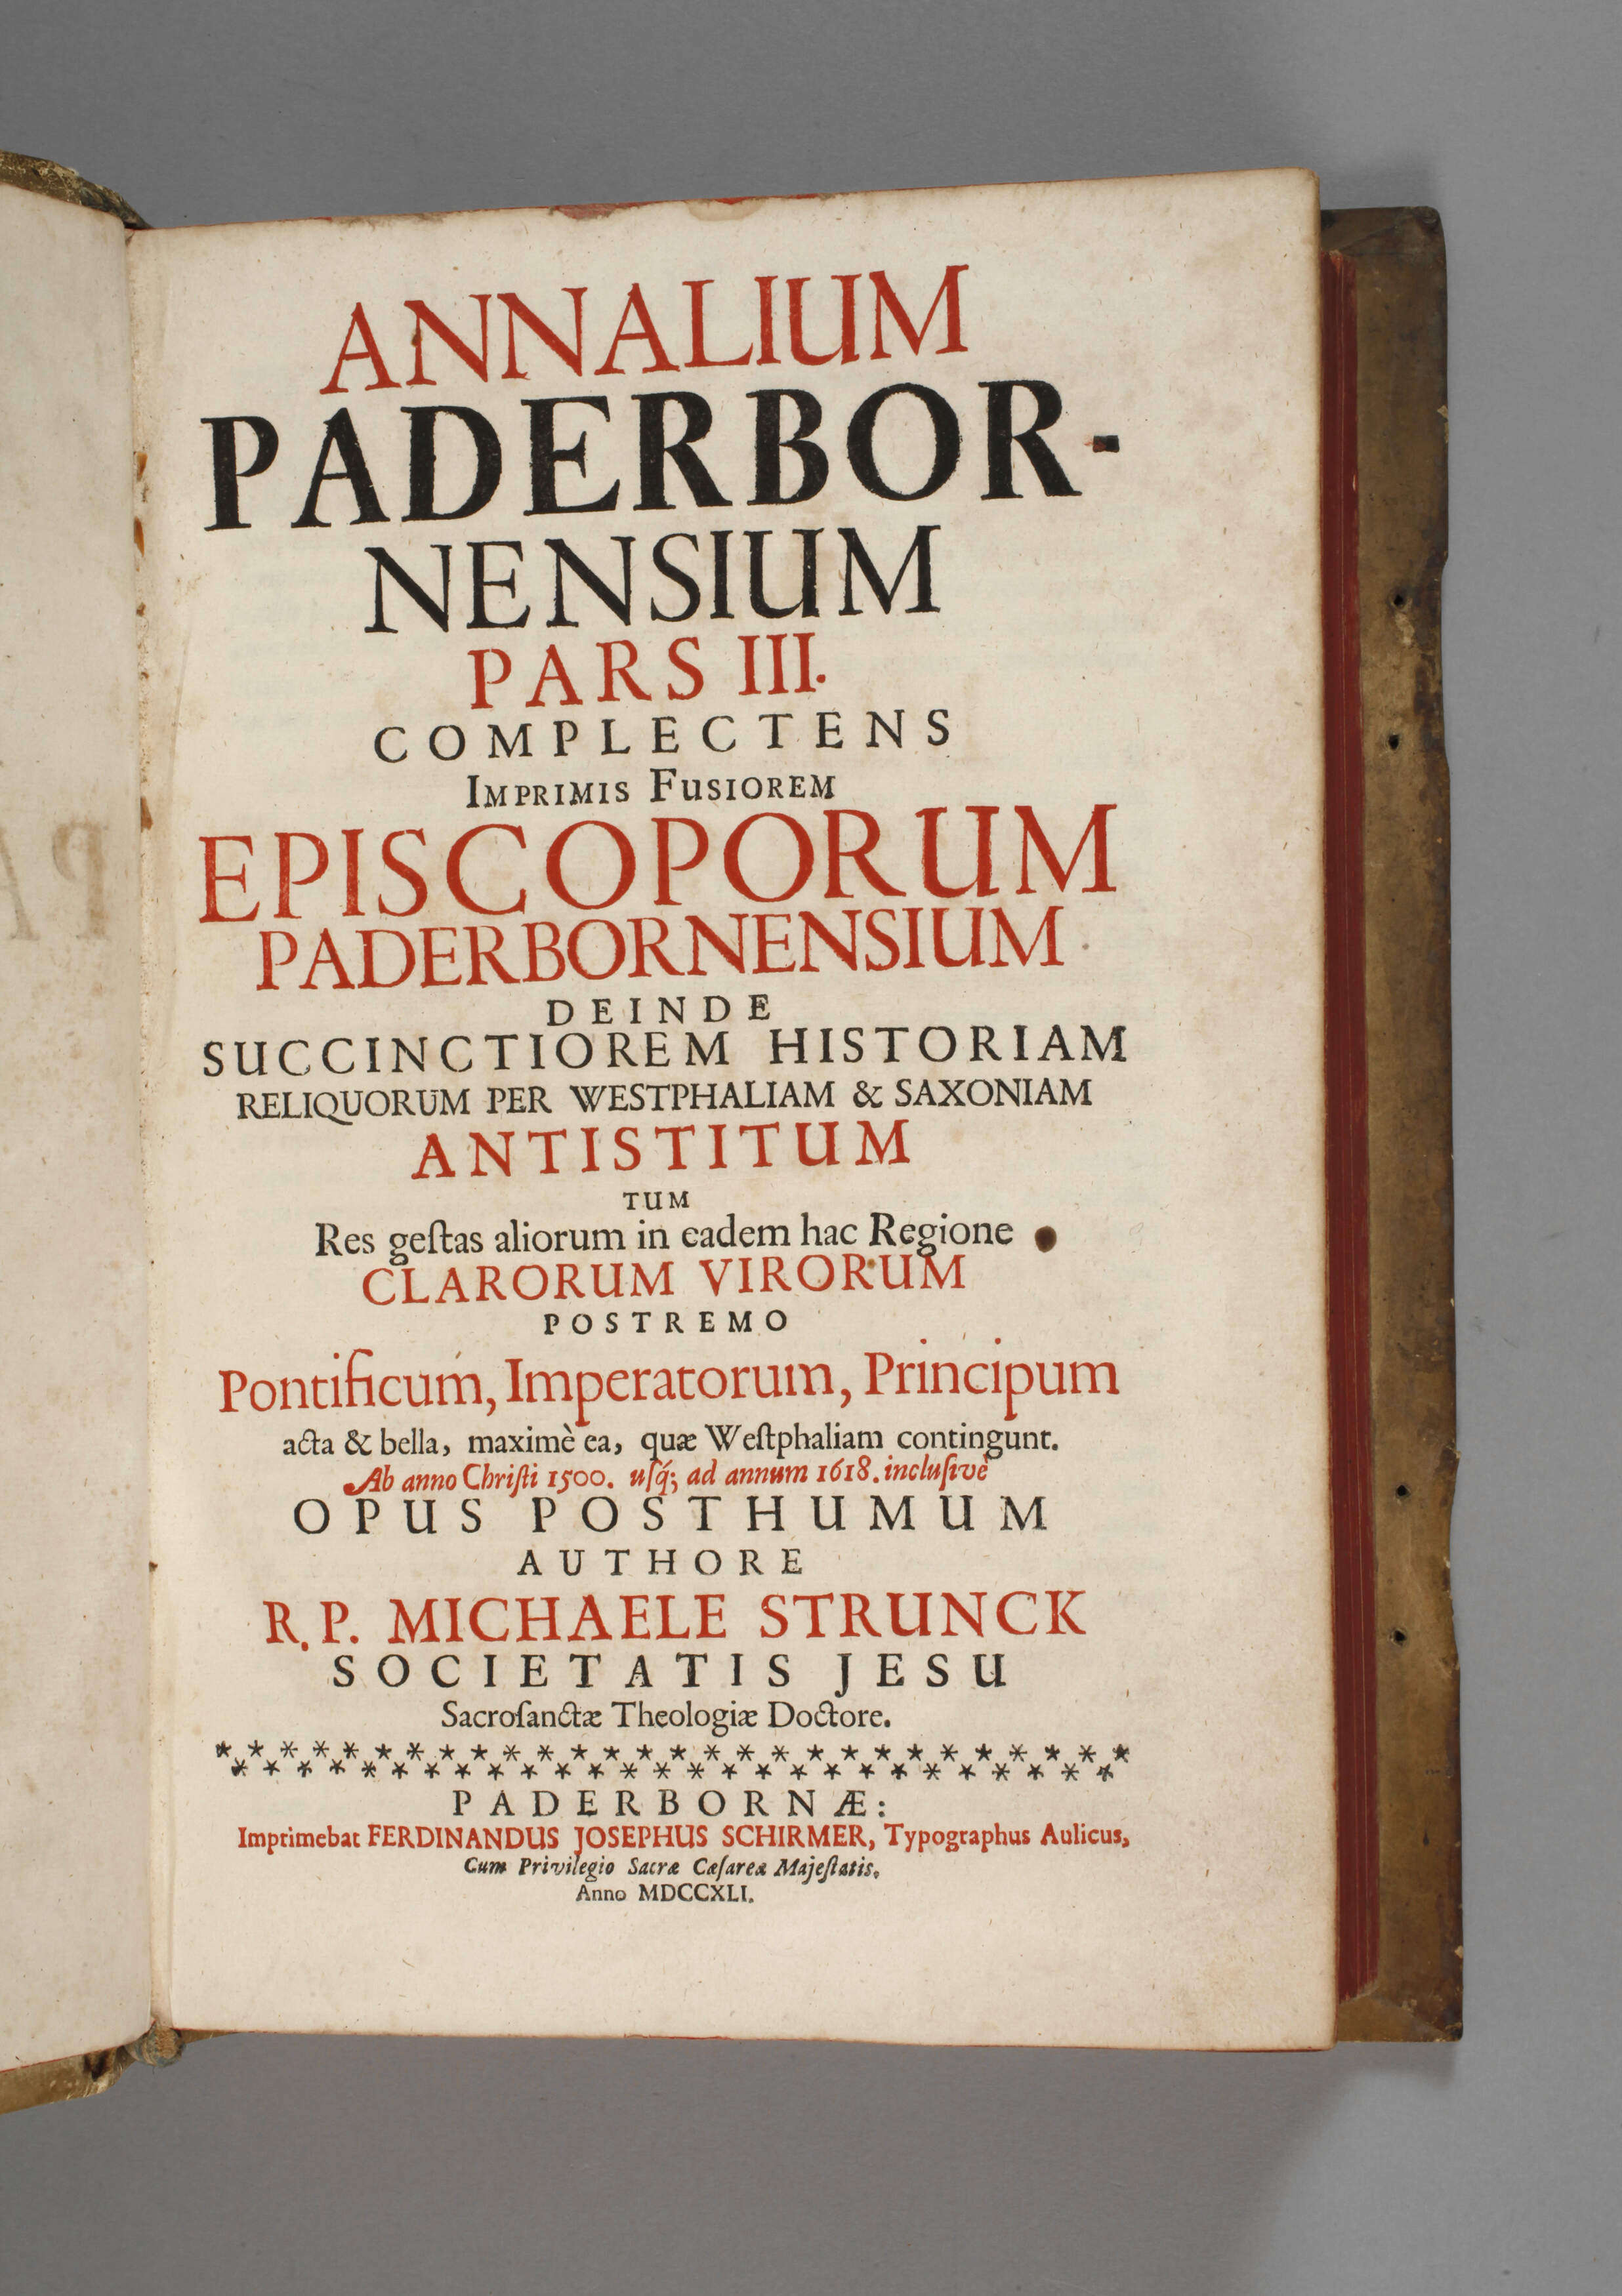 ANNALIUM
PADERBOR-
NENSIUM
PARS III.
COMPLECTENS
IMPRIMIS FUSIOREM
EPISCOPORUM
PADERBORNENSIUM
DEINDE
SUCCINCTIOREM HISTORIAM
RELIQUORUM PER WESTPHALIAM & SAXONIAM
ANTISTITUM
TUM
Res geſtas aliorum in eadem hac Regione
CLARORUM VIRORUM
POSTREMO
Pontificum, Imperatorum, Principum
acta & bella, maximè ea, quæ Weſtphaliam contingunt.
Ab anno Chriſti 1500. uſq́; ad annum 1618. incluſivè
OPUS POSTHUMUM
AUTHORE
R. P. MICHAELE STRUNCK
SOCIETATIS JESU
Sacroſanctæ Theologiæ Doctore.
PADERBORNÆ:
Imprimebat FERDINANDUS JOSEPHUS SCHIRMER, Typographus Aulicus,
Cum Privilegio Sacræ Cæſareæ Majeſtatis.
Anno MDCCXLI.